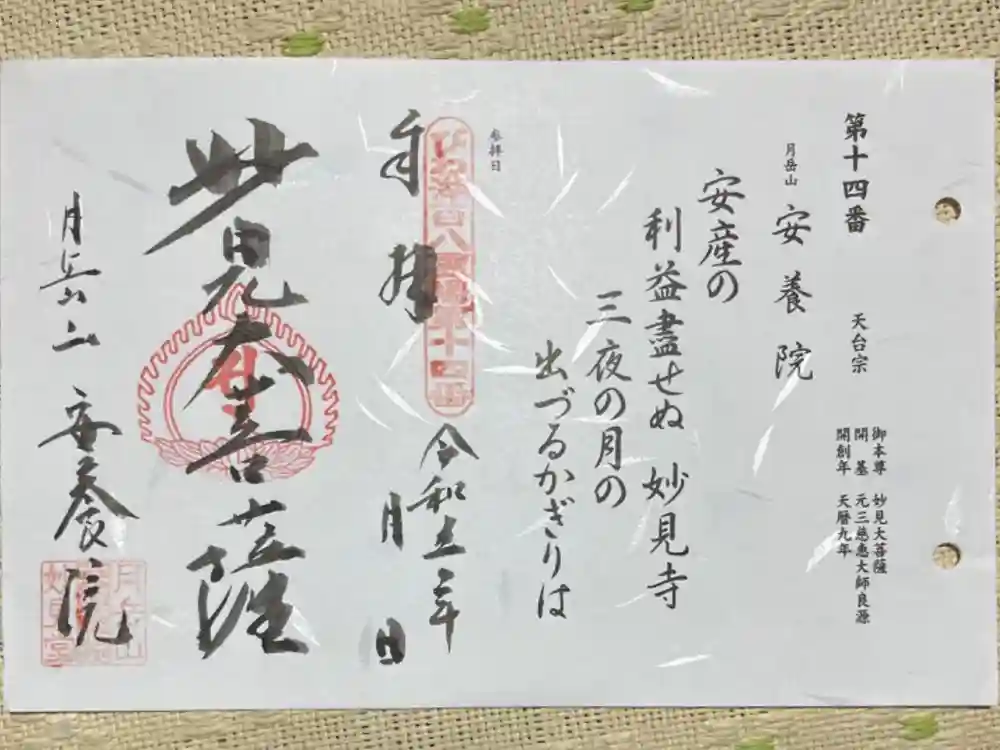 第十四番 天台宗
御本尊 妙見大菩薩
開基 元三慈惠大師良源
開創年 天暦九年
月岳山 安養院
安産の
利益盡せぬ 妙見寺
三夜の月の
出づるかぎりは
参拝日
びわ湖百八霊場第十四番
令和五年
月 日
奉拝
妙見大菩薩
月岳山 安養院